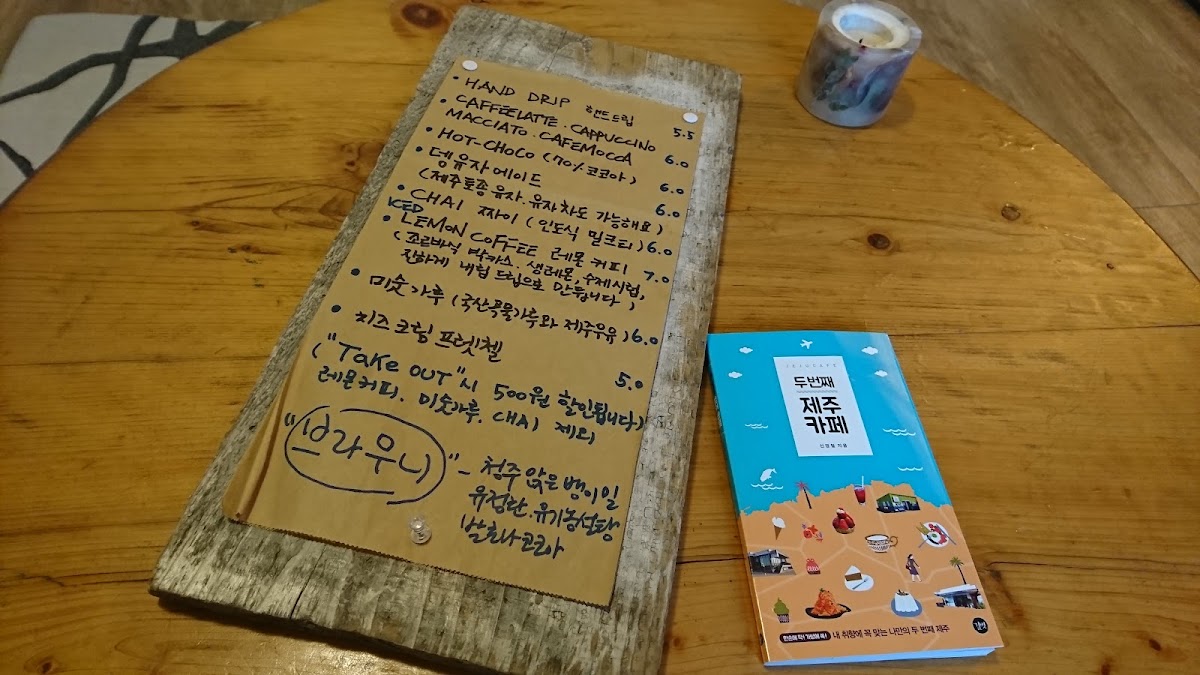 • HAND DRIP 핸드드립 5.5
• CAFFEELATTE . CAPPUCCINO
MACCIATO . CAFEMOCCA 6.0
• HOT-CHOCO (70% 코코아) 6.0
• 댕유자에이드 6.0
(제주토종유자. 유자차도 가능해요)
• CHAI 짜이 (인도식 밀크티) 6.0
ICED
• LEMON COFFEE 레몬커피 7.0
(죠르바식 박카스. 생레몬, 수제시럽,
진하게 내린 드립으로 만듭니다)
• 미숫가루 (국산곡물가루와 제주우유) 6.0
• 치즈크림프렛첼 5.0
("TAKE OUT"시 500원 할인됩니다)
레몬커피. 미숫가루. CHAI 제외
"브라우니" - 청주 앉은뱅이밀
유정란. 유기농설탕
발로나코코아
JEJU CAFE
두번째
제주
카페
신영철 지음
내 취향에 꼭 맞는 나만의 두 번째 제주
길벗